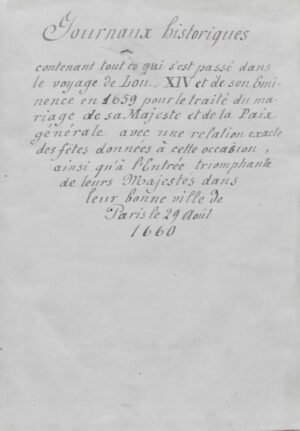 Journaux historiques
contenant tout ce qui s'est passé dans
le voyage de Lou. XIV et de son Emi-
nence en 1659 pour le traité du ma-
riage de sa Majeste et de la Paix
générale avec une relation exacte
des fêtes données à cette occasion,
ainsi qu'à l'Entrée triomphante
de leurs Majestés dans
leur bonne ville de
Paris le 29 Août
1660